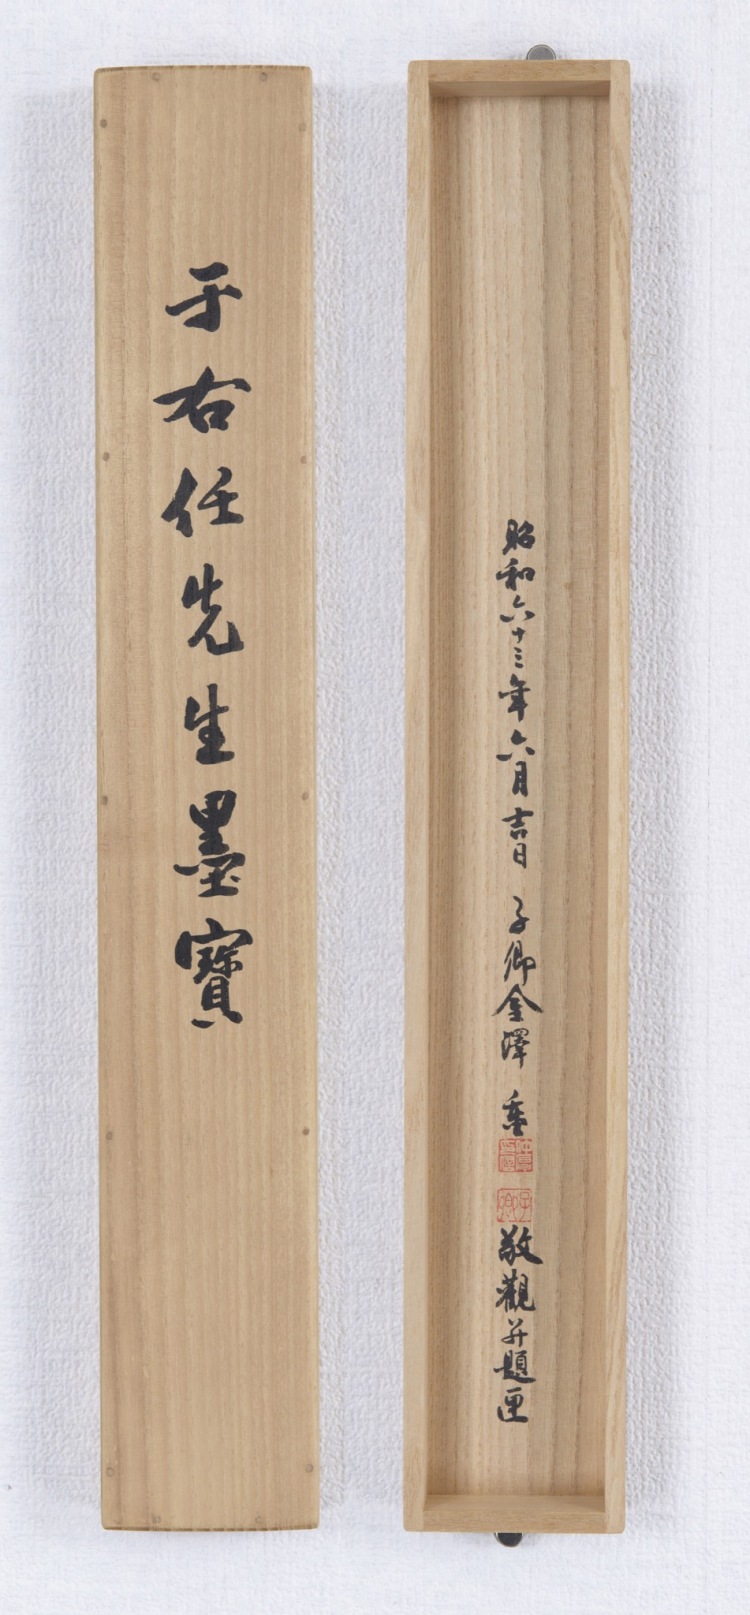 于右任先生墨寶
昭和六十三年六月吉日 子卿金澤 
子卿
敬觀并題匣